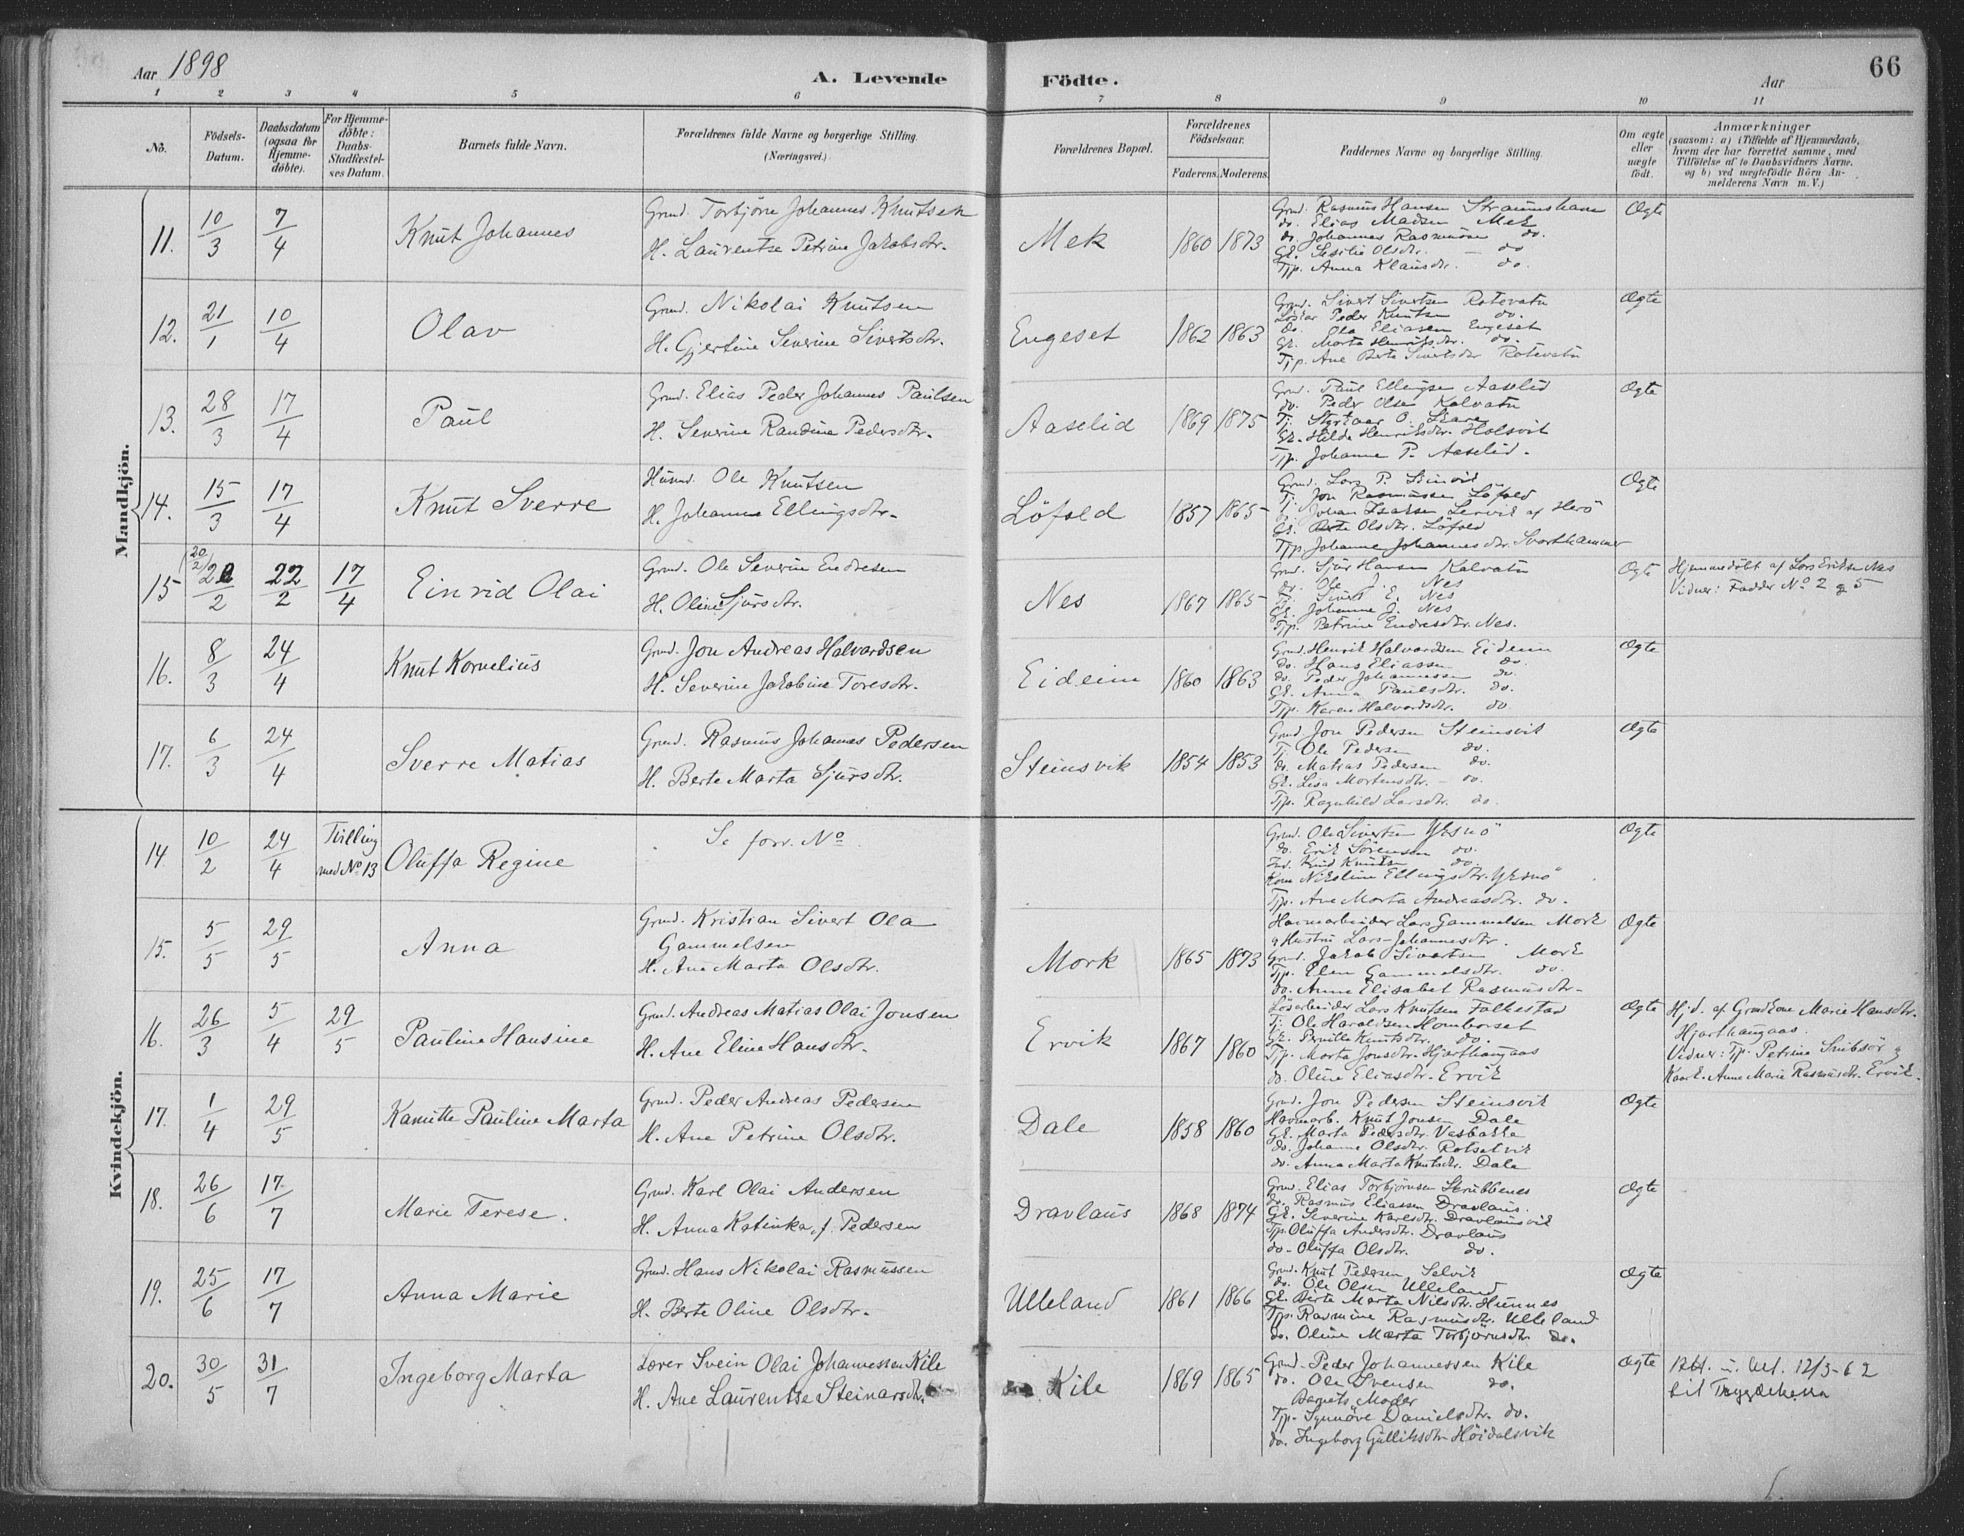 Aar 1898
A. Levende Födte.
Aar
66
1 2 3 4 5 6 7 8 9 10 11
No.
Födsels-Datum.
Daabsdatum (ogsaa for Hjemme-döbte).
For Hjemme-döbte: Daabs-Stadfæstel-ses Datum.
Barnets fulde Navn.
Forældrenes fulde Navne og borgerlige Stilling. (Næringsvei.)
Forældrenes Bopæl.
Forældrenes Födselsaar.
Faderens. Moderens.
Faddernes Navne og borgerlige Stilling.
Om ægte eller uægte födt.
Anmærkninger
(saasom: a) i Tilfælde af Hjemmedaab, hvem der har forrettet samme, med Tilföielse af to Daabsvidners Navne, og b) ved uægtefödte Börn An-melderens Navn m. V.)
Mandkjön.
11. 10/3 7/4 Knut Johannes
Grmd. Torbjörn Johannes Knutsen
H. Laurentse Petrine Jakobsdtr.
Mek 1860 1873
Grmd. Rasmus Hansen Straumshavn
do. Elias Madsen Mek
do. Johannes Rasmussen do.
Gk. Sesilie Olsdtr. — do
Tjp. Anna Klausdtr. — do.
Ægte
12. 21/1 10/4 Olav
Grmd. Nikolai Knutsen
H. Gjertine Severine Sivertsdtr.
Engeset 1862 1863
Grmd. Sivert Sivertsen Rotevatn
Löskar Peder Knutsen do.
do. Ola Eliasen Engeset
Gk. Marta Henriksdtr. do.
Tjp. Ane Berte Sivertsdtr Rotevatn
Ægte
13. 28/3 17/4 Paul
Grmd. Elias Peder Johannes Paulsen
H. Severine Randine Pedersdtr.
Aaselid 1869 1875
Grmd. Paul Ellingsen Aaselid
do. Peder Olsen Kalvatn
Tj. Styrkaar O. Skare
Gk. Hilda Henriksdtr. Holsvik
Tjp. Johanne P. Aaselid.
Ægte
14. 15/3 17/4 Knut Sverre
Husmd. Ole Knutsen
H. Johanne Ellingsdtr.
Löfold 1857 1865
Grmd. Lars P.
Tj. Jon Rasmussen Löfold
do. Johan Isaksen Lervik af Herö
Gk. Berte Olsdtr. Löfold
Tjp. Johanne Johannesdtr. Svarthammer
Ægte
15 (20/2) 2/2 22/2 17/4 Einrid Olai
Grmd. Ole Severin Endresen
H. Oline Sjursdtr.
Nes 1867 1865
Grmd. Sjur Hansen Kalvatn
do. Ole J. Nes
Tj. Sivert E. Nes
Gk. Johanne J. Nes
Tjp. Petrine Endresdtr. Nes.
Ægte
Hjemmedöbt af Lars Eriksen Nes
Vidner: Fadder No 2 og 5
16. 8/3 24/4 Knut Kornelius
Grmd. Jon Andreas Halvardsen
H. Severine Jakobine Toresdtr.
Eideim 1860 1863
Grmd. Henrik Halvardsen Eideim
do. Hans Eliassen do.
do. Peder Johannessen do
Gk. Anna Paulsdtr. do.
Tjp. Karen Halvardsdtr. do
Ægte
17. 6/3 24/4 Sverre Matias
Grmd. Rasmus Johannes Pedersen
H. Berte Marta Sjursdtr.
Steinsvik 1854 1853
Grmd Jon Pedersen Steinsvik
Tj. Ole Pedersen do.
do. Matias Pedersen do.
Gk. Lisa Mortensdtr. — do.
Tjp. Ragnhild Larsdtr. do.
Ægte
Kvindekjön.
14. 10/2 24/4 Tvilling med No 13 Oluffa Regine
Se forr. No
Grmd. Ole Sivertsen Yksnö
do. Erik Sörensen do.
Ind. Knud Knutsen do.
Kone Nikoline Ellingsdtr. Yksnö
Tjp. Ane Marta Andreasdtr. do.
Ægte
15. 5/5 29/5 Anna
Grmd. Kristian Sivert Ola
Gammelsen
H. Ane Marta Olsdtr.
Mork 1865 1873
Havnarbeider Lars Gammelsen Mork
og Hustru Lars-Johannesdtr.
Grmd. Jakob Sivertsen Mork
Tjp. Elen Gammelsdtr. do.
do. Anne Elisabet Rasmusdtr.
Ægte
16. 26/3 5/4 29/5 Pauline Hansine
Grmd. Andreas Matias Olai Jonsen
H. Ane Eline Hansdtr.
Ervik 1867 1860
Lösarbeider Lars Knutsen Folkestad
Tj. Ole Haraldsen Homborset
Gk. Pernille Knutsdtr. do.
Tjp. Marta Jonsdtr. Hjorthaugaas
do. Oline Eliasdtr. Ervik
Ægte
Hjd. af Grmdkone Marie Hansdtr.
Hjorthaugaas.
Vidner: Tjp. Petrine Snibsör og
Kaark. Anne Marie Rasmusdtr. Ervik.
17. 1/4 29/5 Kamitte Pauline Marta
Grmd. Peder Andreas Pedersen
H. Ane Petrine Olsdtr.
Dale 1858 1860
Grmd. Jon Pedersen Steinsvik
Havnarb. Knut Jonsen Dale
Gk. Marta Pedersdtr. Vasbakke
do. Johanne Olsdtr. Rotsetvik
do. Anna Marta Knutsdtr. Dale
Ægte
18. 26/6 17/7 Marie Terese.
Grmd. Karl Olai Andersen
H. Anna Katinka, f. Pedersen
Dravlaus 1868 1874
Grmd. Elias Torbjörnsen Skrubbenes
do. Rasmus Eliassen Dravlaus.
Gk. Severine Karlsdtr. Dravlausvik
Tjp. Oluffa Andersdtr. Dravlaus
do. Oluffa Olsdtr. do.
Ægte
19. 25/6 17/7 Anna Marie
Grmd. Hans Nikolai Rasmussen
H. Berte Oline Olsdtr.
Ulleland 1861 1866
Grmd. Knut Pedersen Selvik
do. Ole Olsen Ulleland
Gk. Berte Marta Nilsdtr. Hunnes
Tjp. Rasmine Rasmusdtr. Ulleland
do. Oline Marta Torbjörnsdtr do.
Ægte
20. 30/5 31/7 Ingeborg Marta
Lærer Svein Olai Johannessen Kile
H. Ane Laurentse Steinarsdtr.
Kile 1869 1865
Grmd. Peder Johannessen Kile
do. Ole Svensen do.
Barnets Moder
Tjp. Synnöve Danielsdtr. do.
do. Ingeborg Gulliksdtr Höidalsvik
Ægte
Att. u. utf. 12/3-62
til Trygdekassa